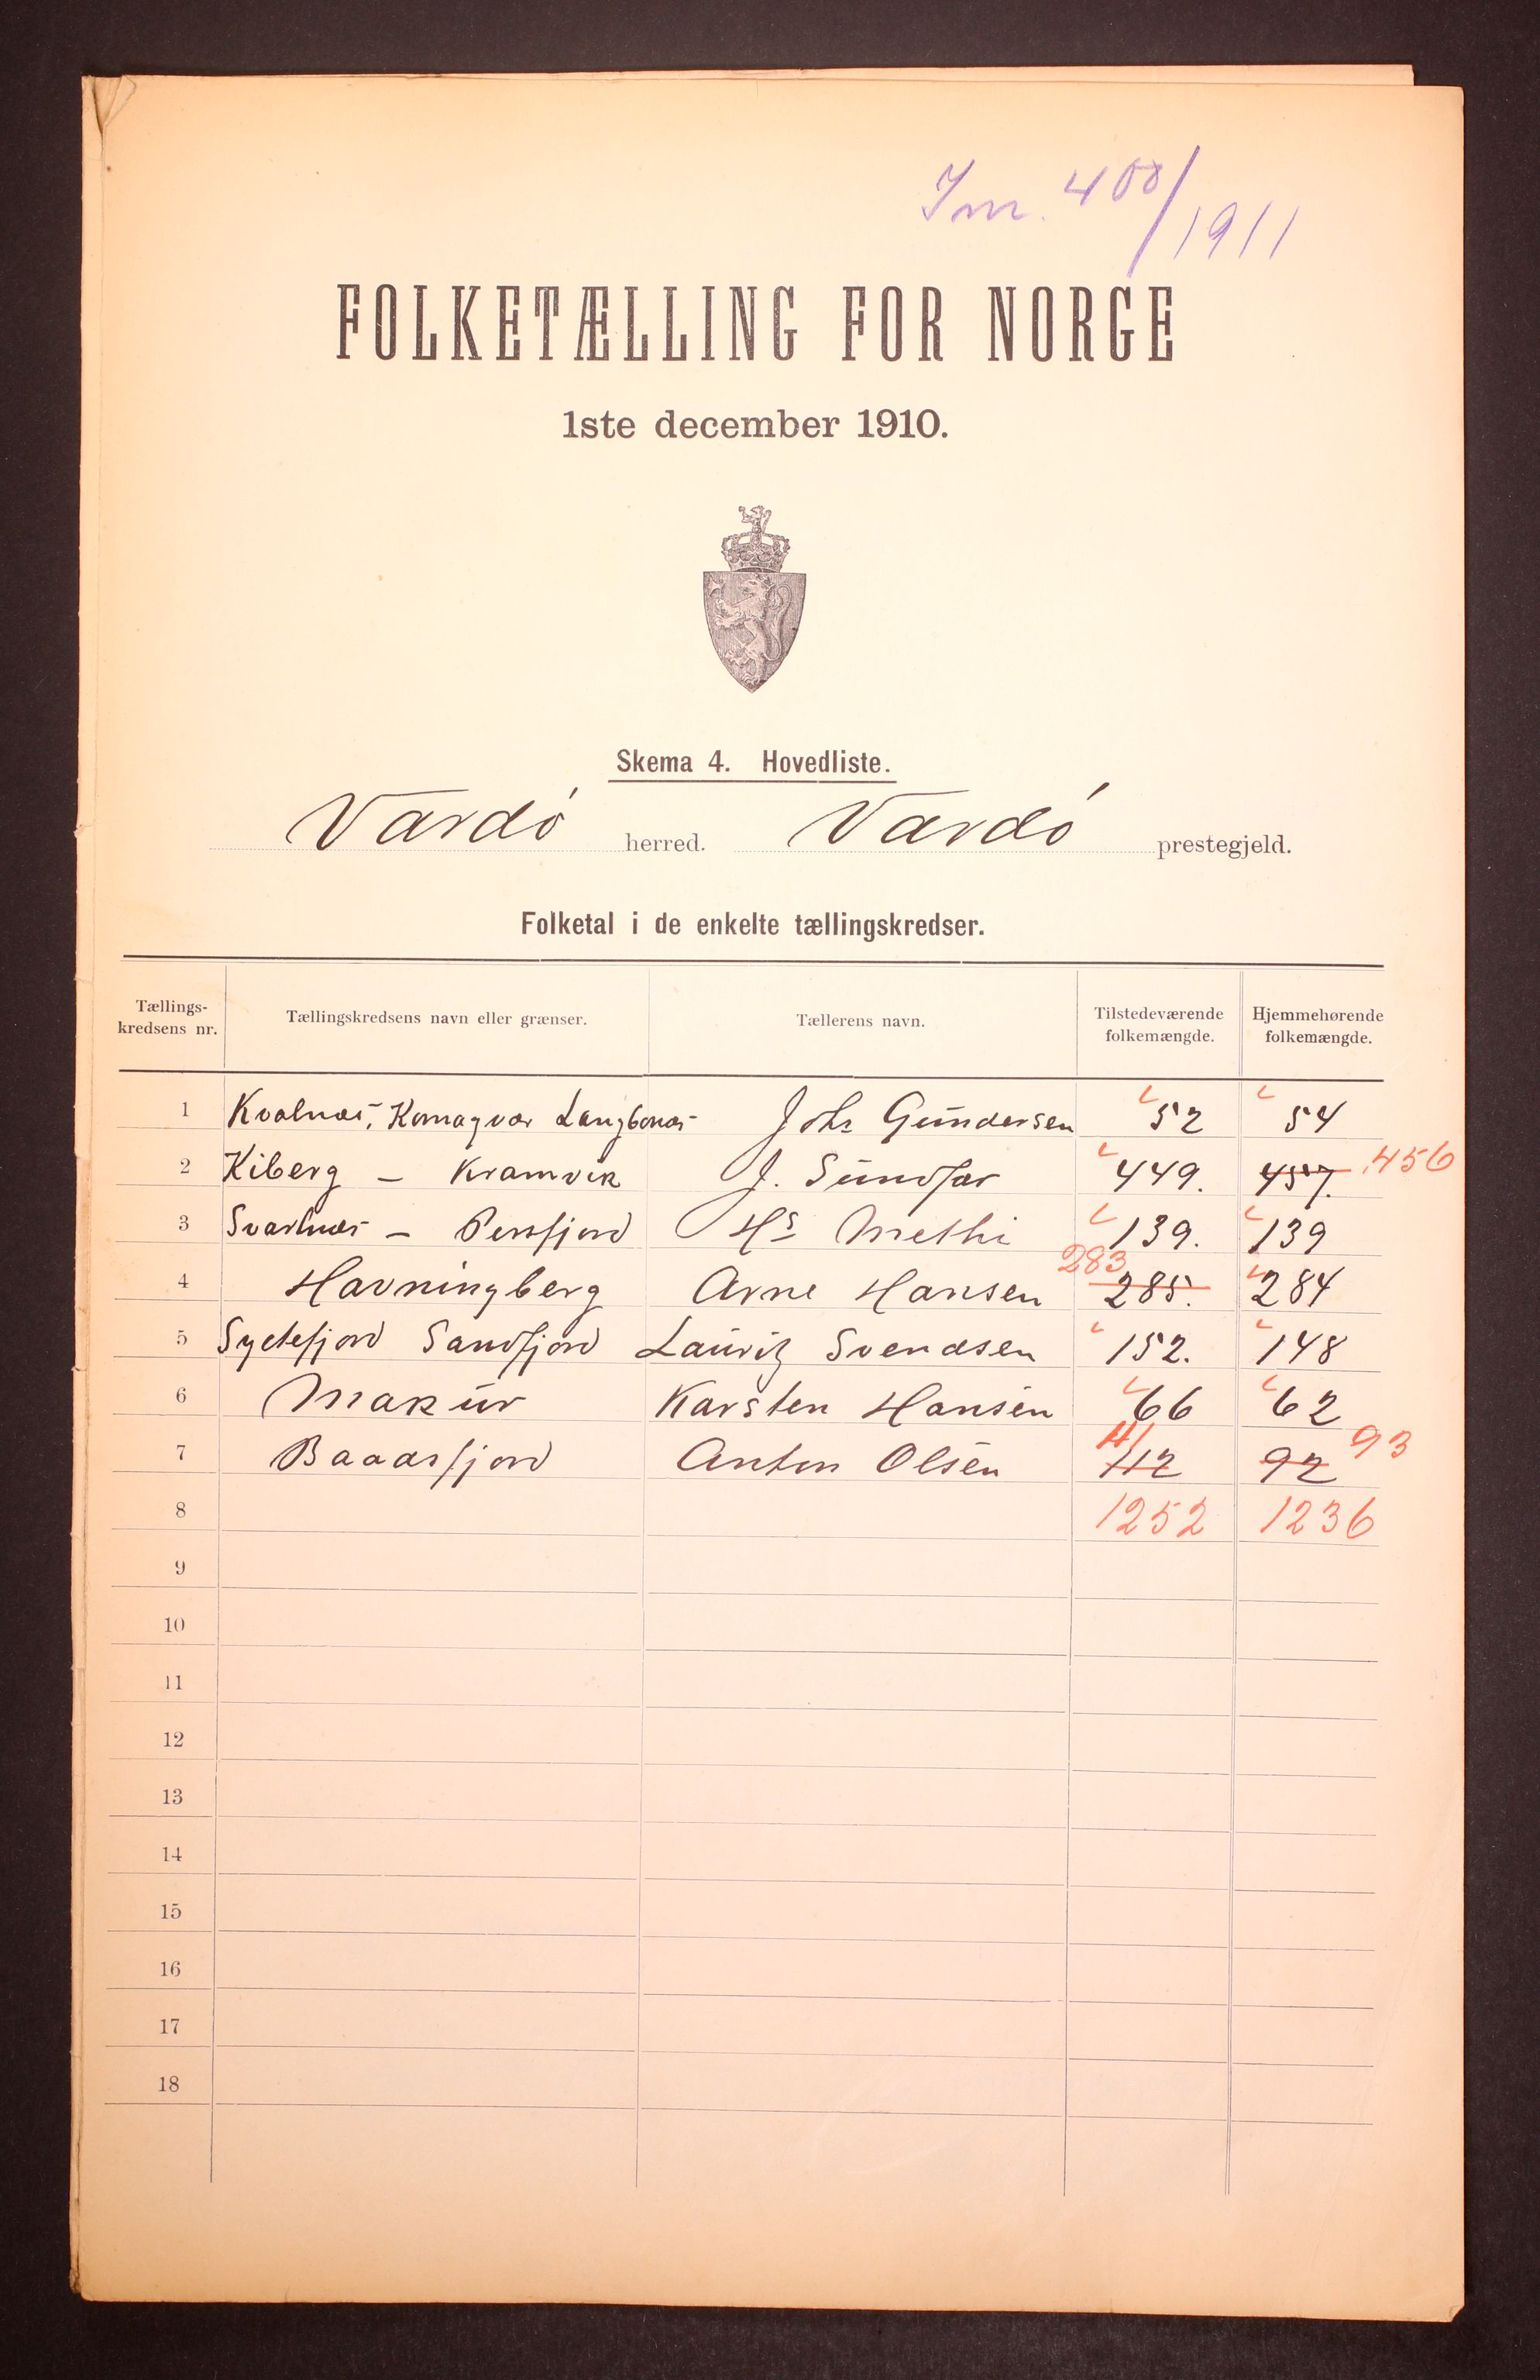 Jm. 400/1911
FOLKETÆLLING FOR NORGE
1ste december 1910.
Skema 4. Hovedliste.
Vardó herred. Vardó prestegjeld.
Folketal i de enkelte tællingskredser.
Tællings-kredsens nr. Tællingskredsens navn eller grænser. Tællerens navn. Tilstedeværende folkemængde. Hjemmehørende folkemængde.
1 Kvalnæs, Komagvær Langbunes Johs Gundersen 52 54
2 Kiberg - Kramvik J. Sundfær 449. 457. 456
3 Svartnæs - Persfjord Hs Methi 139. 139
4 Havningberg Arne Hansen 283 285. 284
5 Syltefjord Sandfjord Lauritz Svendsen 152. 148
6 Makur Karsten Hansen 66 62
7 Baadsfjord Anton Olsen 111 112 92 93
8 1252 1236
9
10
11
12
13
14
15
16
17
18